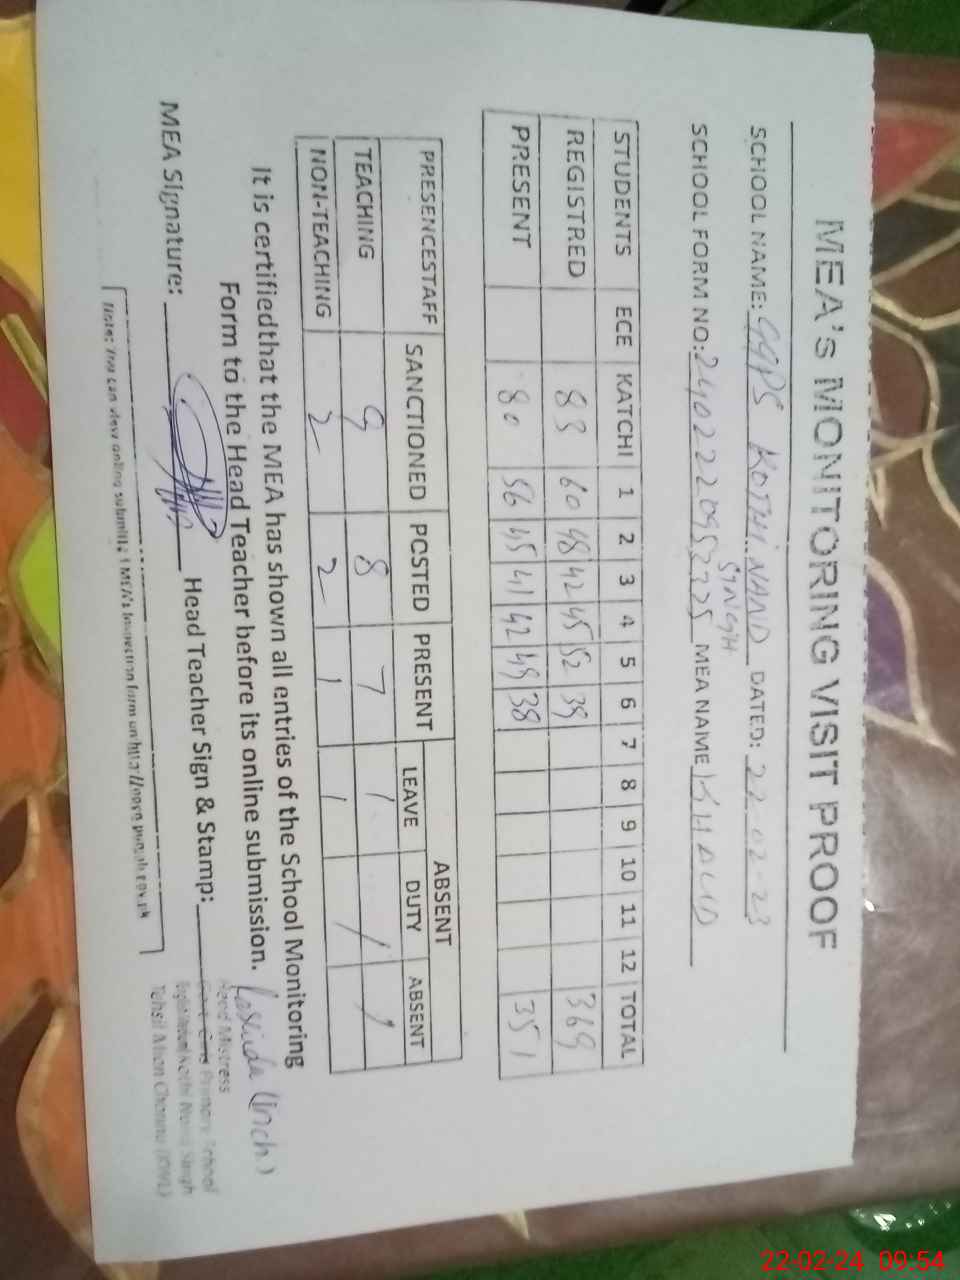 MEA's MONITORING VISIT PROOF
SCHOOL NAME: GGPS KOTHI NAND SINGH DATED: 22-02-23
SCHOOL FORM NO: MEA NAME KHALID
STUDENTS ECE KATCHI 1 2 3 4 5 6 7 8 9 10 11 12 TOTAL
REGISTRED 83 60 48 42 45 52 39 369
PRESENT 80 56 45 41 42 49 38 351
PRESENCESTAFF SANCTIONED POSTED PRESENT ABSENT
LEAVE DUTY ABSENT
TEACHING 9 8 7 1 / /
NON-TEACHING 2 2 1 1
It is certifiedthat the MEA has shown all entries of the School Monitoring
Form to the Head Teacher before its online submission.
MEA Signature: Head Teacher Sign & Stamp:
Head Mistress
Govt. Girls Primary School
Kothi Nand Singh
Tehsil Mian Channu (KWL)
Note: You can view online submitted MEA's Inspection form on http://open.punjab.gov.pk
22-02-24 09:54